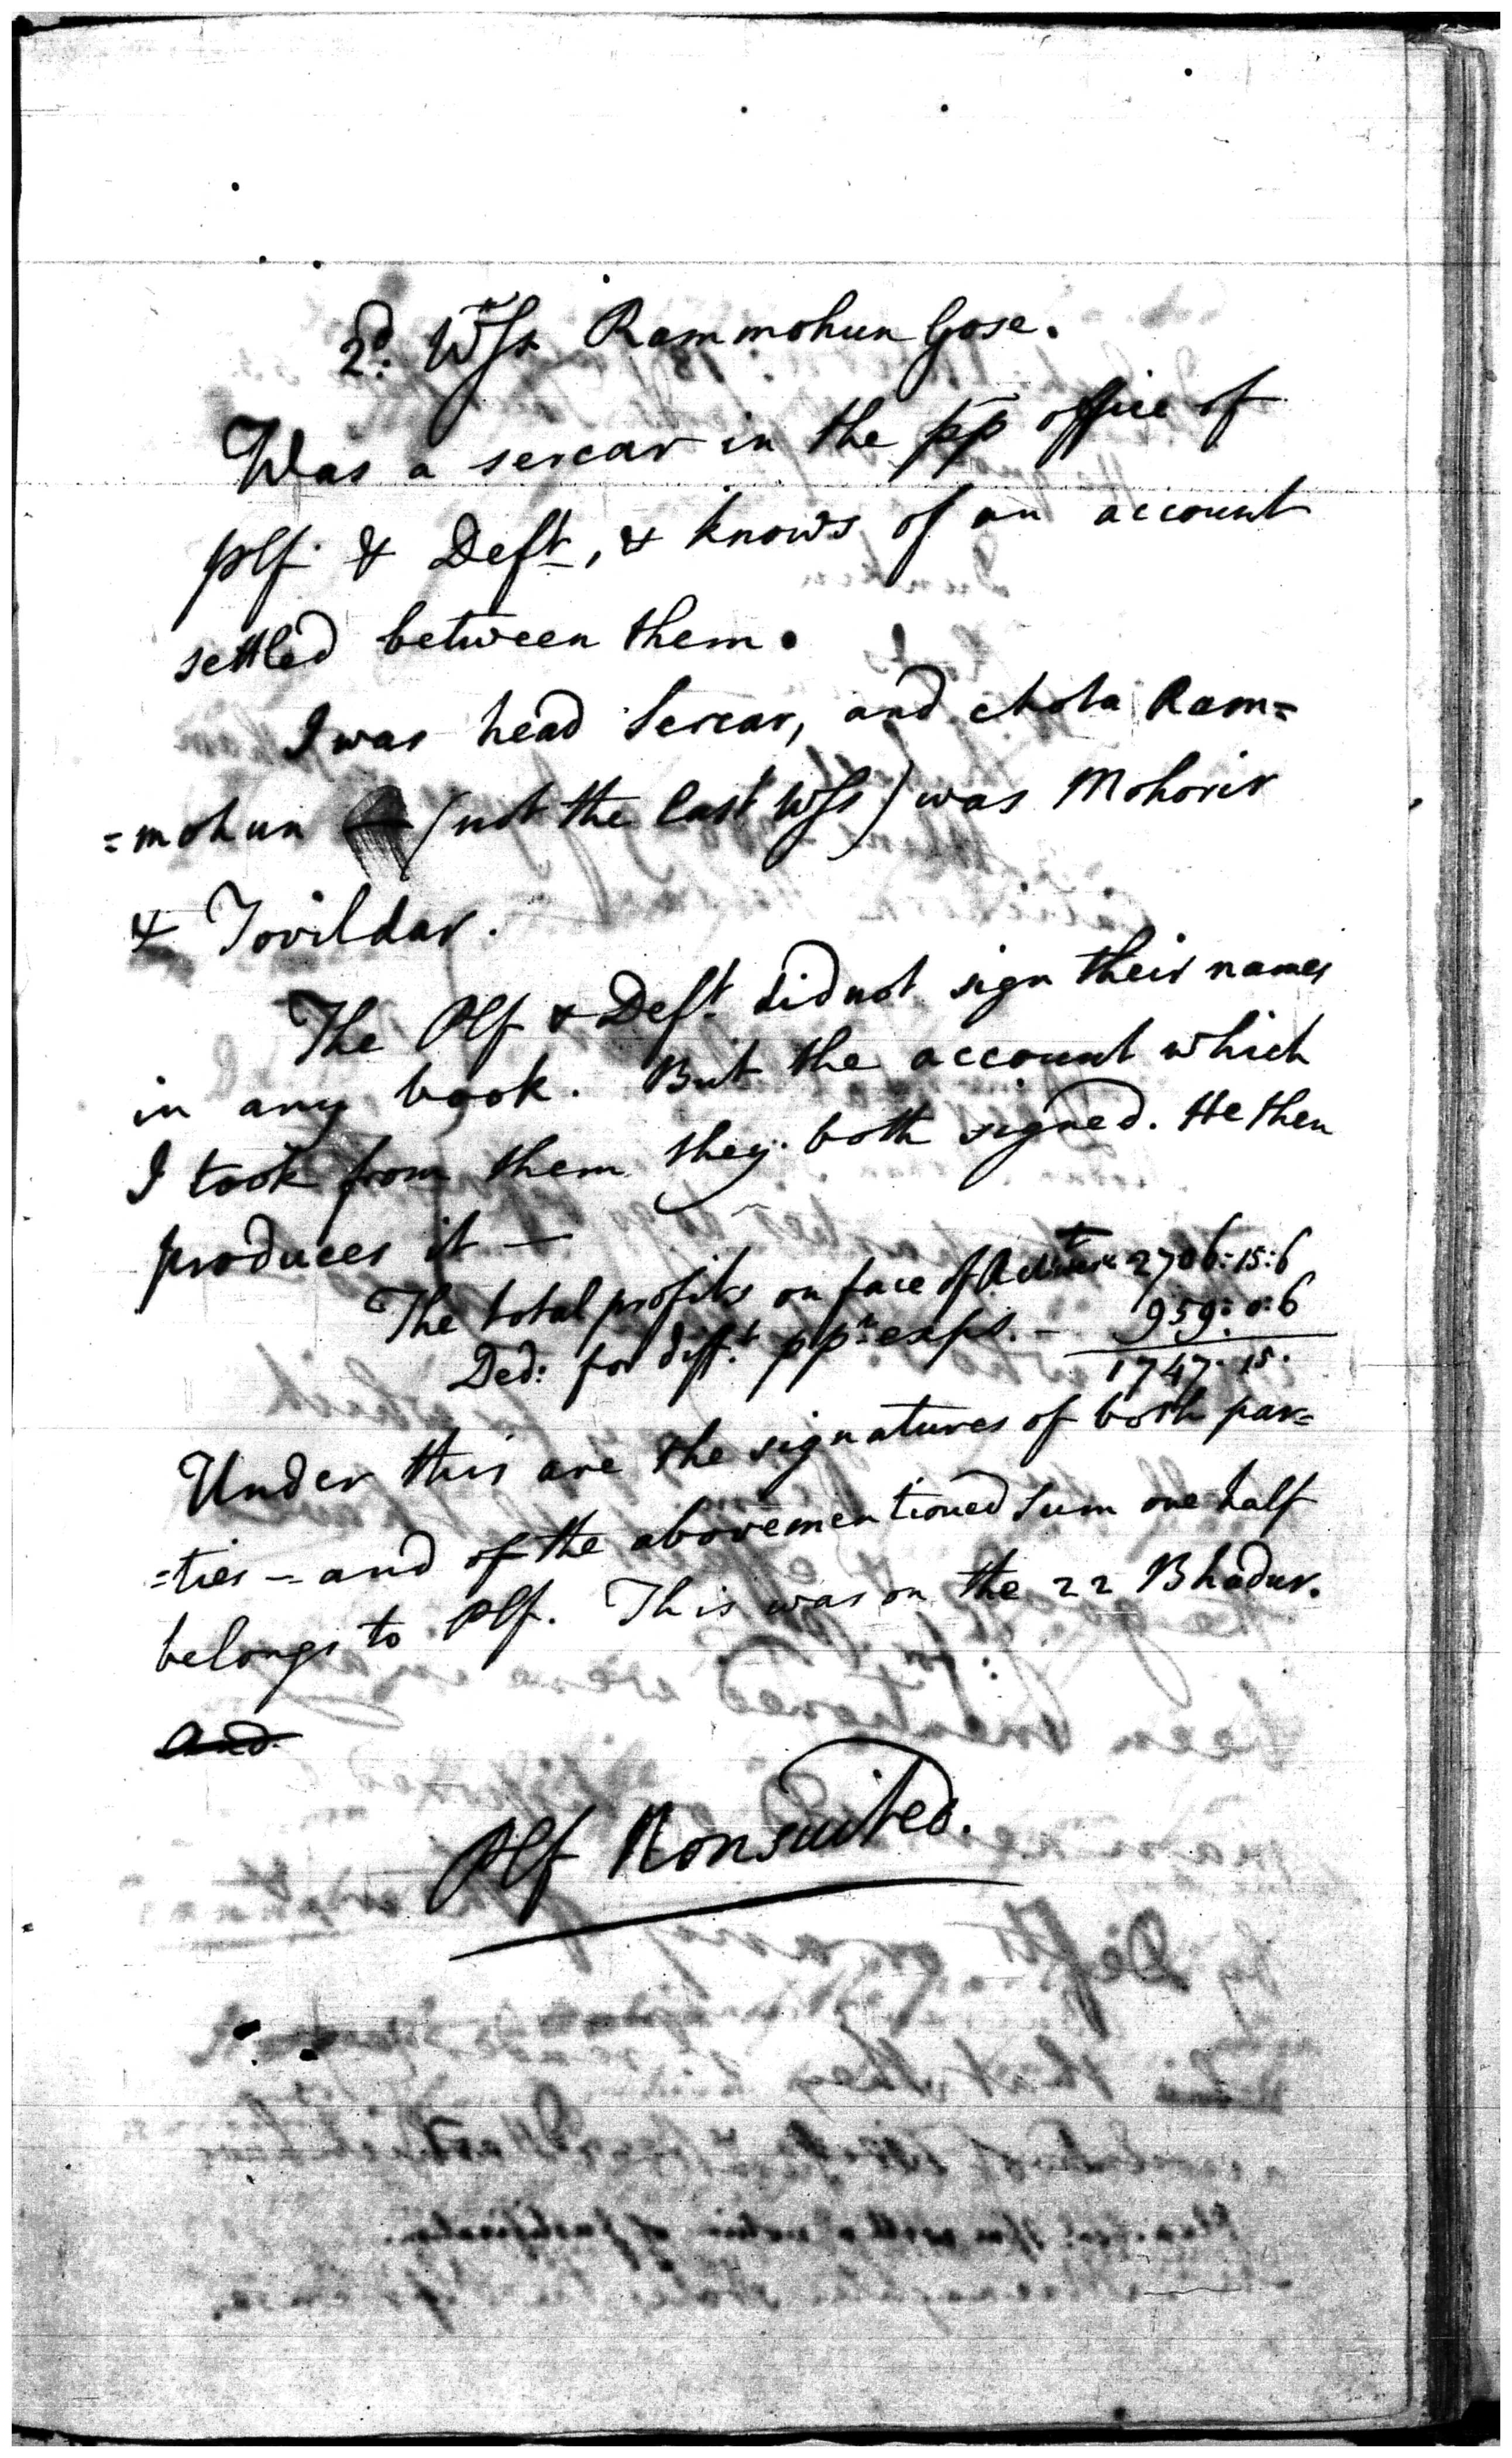 2d. Wss Rammohun Gose.
Was a sercar in the pp office of
Plf & Deft, & knows of an account
settled between them.
I was head Sercar, and chota Ram=
=mohun (not the last Wss) was Mohorir
& Tovildar.
The Plf & Deft. did not sign their names
in any book. But the account which
I took from them they both signed. He then
produces it —
The total profits on face of 2706:15:6
Ded: for difft. ppn exps. — 959:0:6
1747.15.
Under this are the signatures of both par=
=ties — and of the abovementioned Sum one half
belongs to Plf. This was on the 22 Bhadur.
and
Plf Nonsuited.